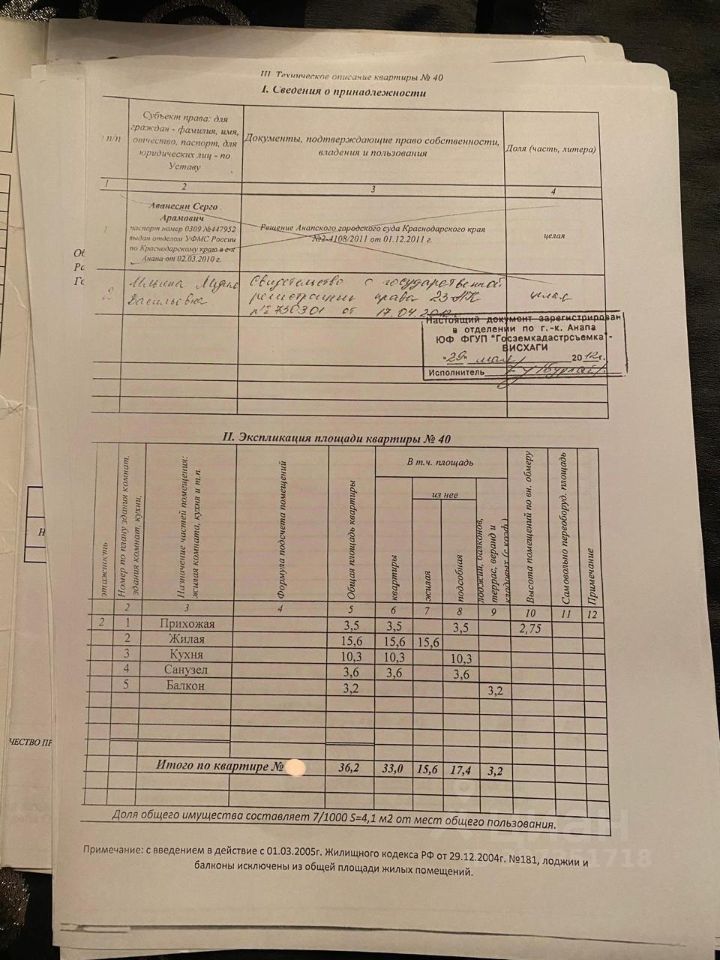 III. Техническое описание квартиры № 40
I. Сведения о принадлежности
п/п
Субъект права: для
граждан - фамилия, имя,
отчество, паспорт, для
юридических лиц - по
Уставу
Документы, подтверждающие право собственности,
владения и пользования
Доля (часть, литера)
1
2
3
4
1
Аванесян Серго
Арамович
паспорт номер 0309 №447952
выдан отделом УФМС России
по Краснодарскому краю в
Анапа от 02.03.2010 г.
Решение Анапского городского суда Краснодарского края
№2-4108/2011 от 01.12.2011 г.
целая
2
Васильевна
Свидетельство о государственной
регистрации права 23-АК
№ 736301 от 17.04.2012
целая
Настоящий документ зарегистрирован
в отделении по г.-к. Анапа
ЮФ ФГУП "Госземкадастрсъемка"-
ВИСХАГИ
"29" мая 2012г.
Исполнитель
II. Экспликация площади квартиры № 40
этажность
Номер по плану здания комнат,
здания комнат, кухни,
Назначение частей помещения:
жилая комната, кухня и т.п.
Формула подсчета помещений
Общая площадь квартиры
В т.ч. площадь
квартиры
из нее
жилая
подсобная
лоджий, балконов,
террас, веранд и
кладовых (с коэф.)
Высота помещений по вн. обмеру
Самовольно переоборуд. площадь
Примечание
2 3 4 5 6 7 8 9 10 11 12
2 1 Прихожая 3,5 3,5 3,5 2,75
2 Жилая 15,6 15,6 15,6
3 Кухня 10,3 10,3 10,3
4 Санузел 3,6 3,6 3,6
5 Балкон 3,2 3,2
Итого по квартире № 36,2 33,0 15,6 17,4 3,2
Доля общего имущества составляет 7/1000 S=4,1 м2 от мест общего пользования.
Примечание: с введением в действие с 01.03.2005г. Жилищного кодекса РФ от 29.12.2004г. №181, лоджии и
балконы исключены из общей площади жилых помещений.